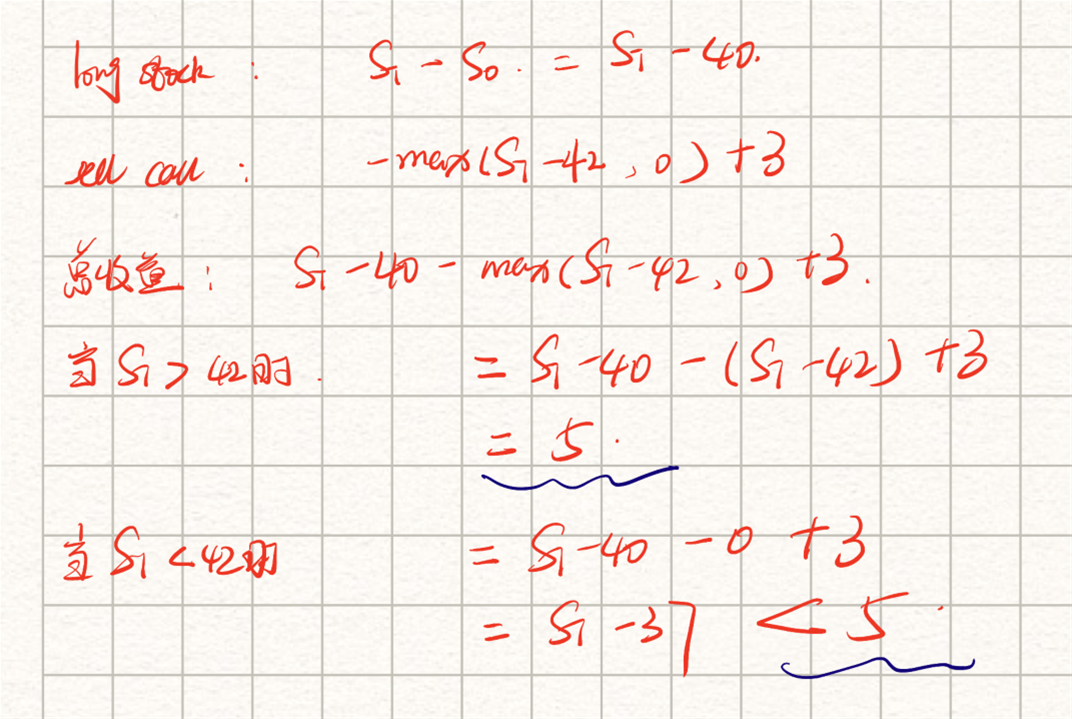 long stock : S₁ - S₀. = S₁ - 40.
sell call : -max(S₁ - 42, 0) + 3
总收益: S₁ - 40 - max(S₁ - 42, 0) + 3.
当 S₁ > 42时. = S₁ - 40 - (S₁ - 42) + 3
= 5.
当 S₁ < 42时 = S₁ - 40 - 0 + 3
= S₁ - 37 < 5.